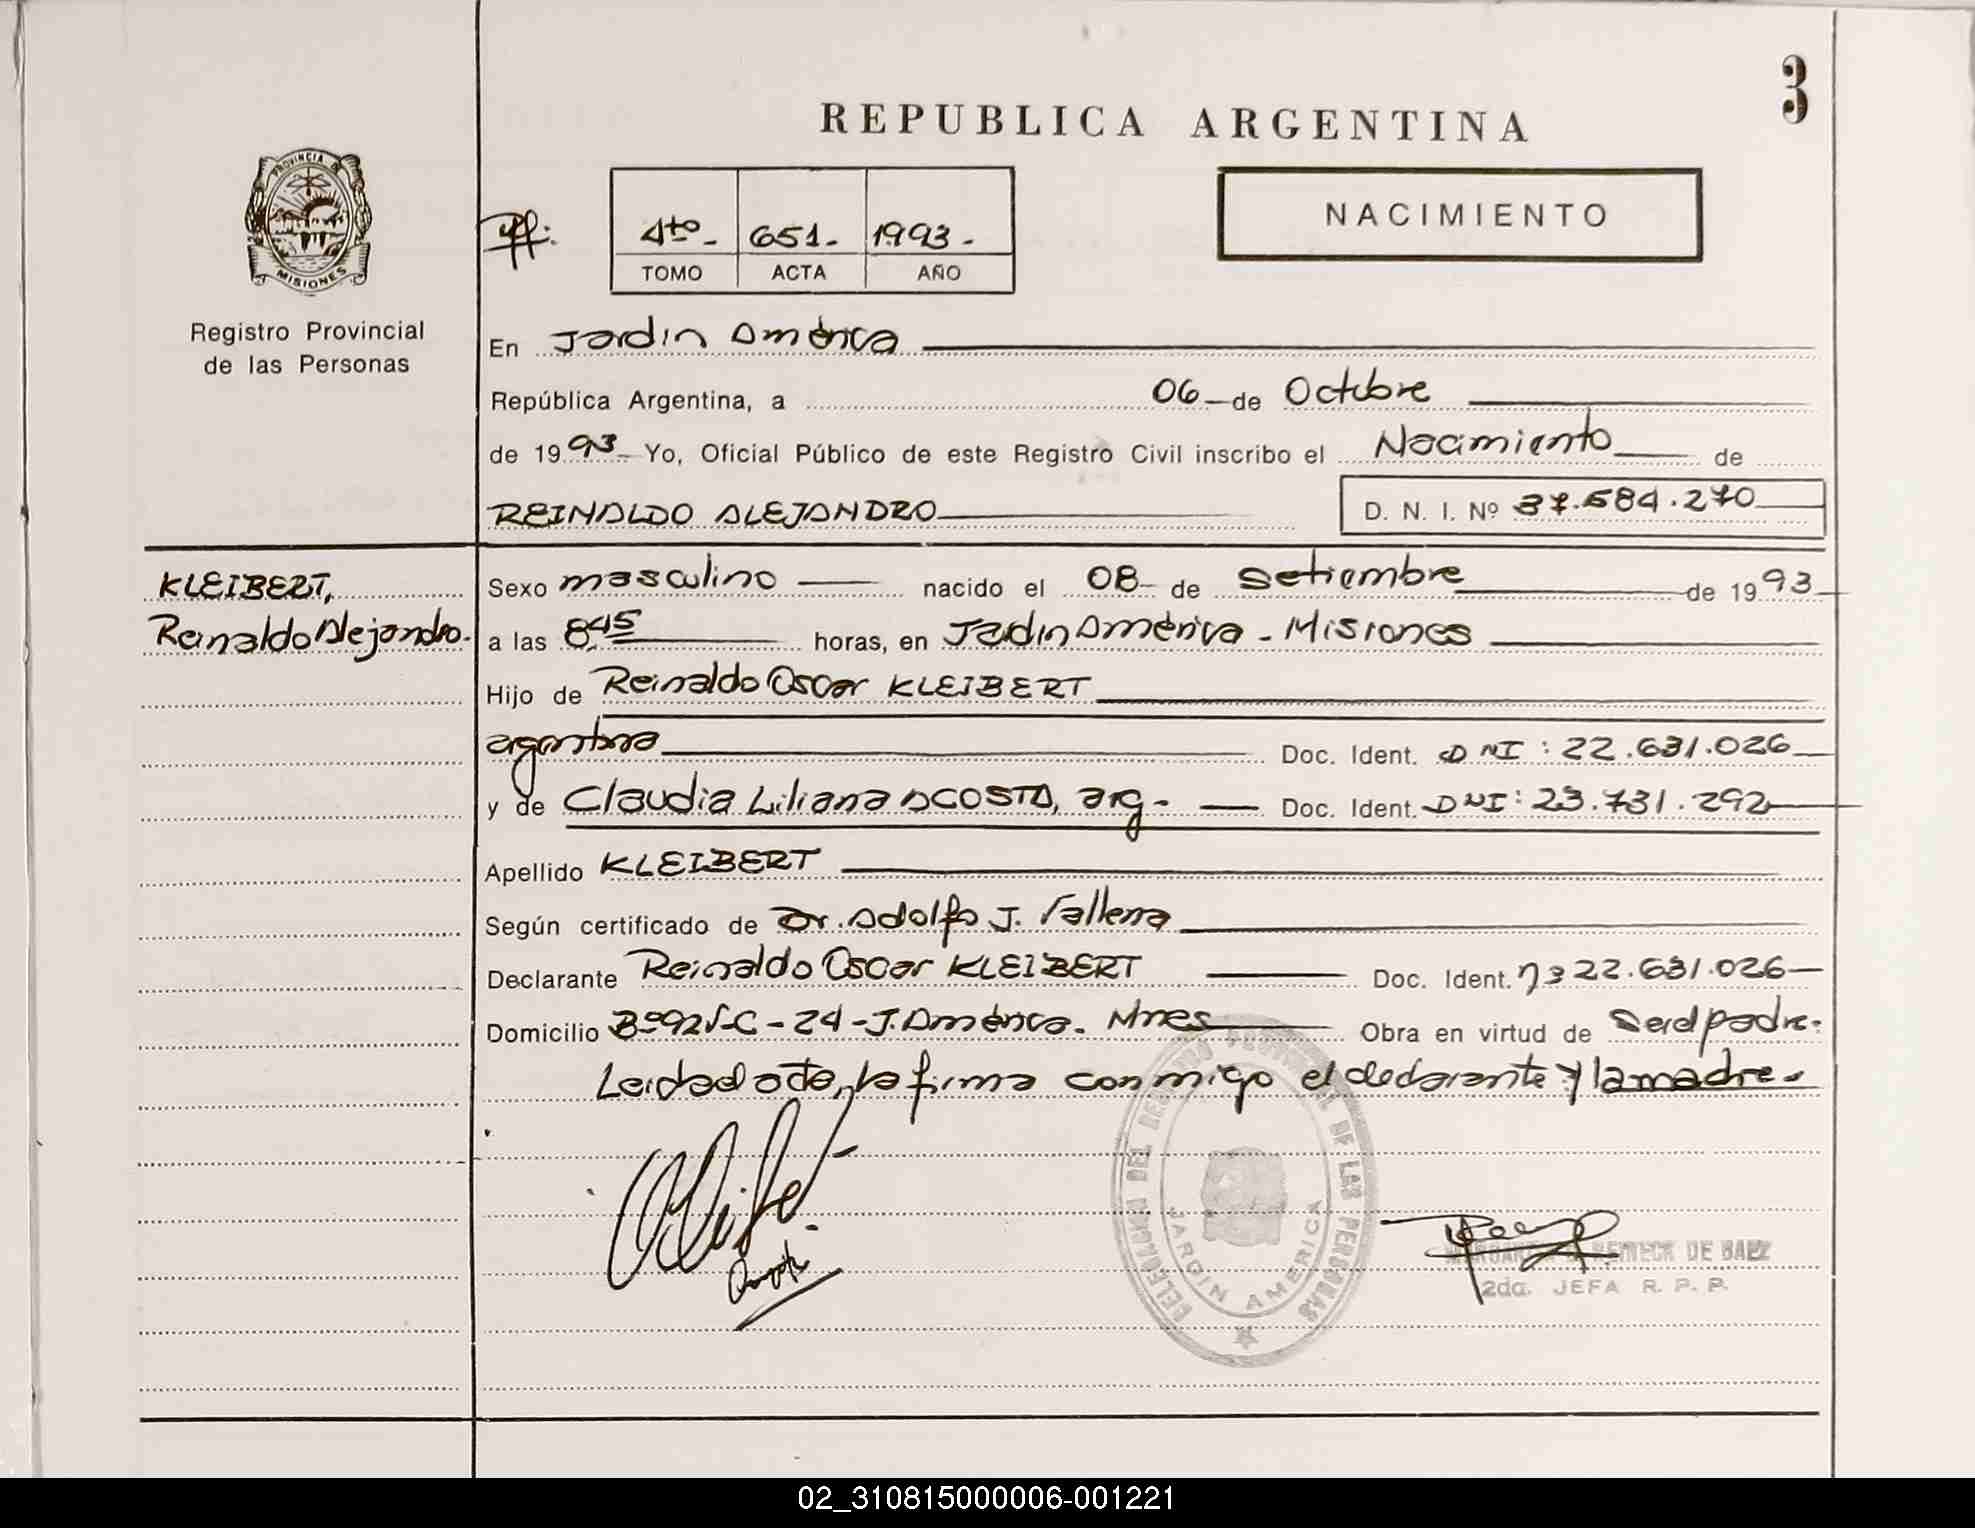 3
REPUBLICA ARGENTINA
PROVINCIA DE
MISIONES
Registro Provincial
de las Personas
NACIMIENTO
4to- 651- 1993-
TOMO ACTA AÑO
En Jardin América
República Argentina, a 06 de Octubre
de 1993 Yo, Oficial Público de este Registro Civil inscribo el Nacimiento de
REINALDO ALEJANDRO D. N. I. Nº 37.584.270
KLEIBERT,
Reinaldo Alejandro.
Sexo masculino nacido el 08 de Setiembre de 1993
a las 8,45 horas, en Jardin América - Misiones
Hijo de Reinaldo Oscar KLEIBERT
argentino Doc. Ident. DNI: 22.631.026
y de Claudia Liliana ACOSTA, arg- Doc. Ident. DNI: 23.731.292
Apellido KLEIBERT
Según certificado de Dr. Adolfo J.
Declarante Reinaldo Oscar KLEIBERT Doc. Ident. 22.631.026
Domicilio C-24-J.América. Mnes Obra en virtud de Ser el padre.
Leida el acta, la firma conmigo el declarante y la madre.
DELEGACION DEL REGISTRO PROVINCIAL DE LAS PERSONAS
JARDIN AMERICA
DE BAEZ
2da. JEFA R. P. P.
02_310815000006-001221